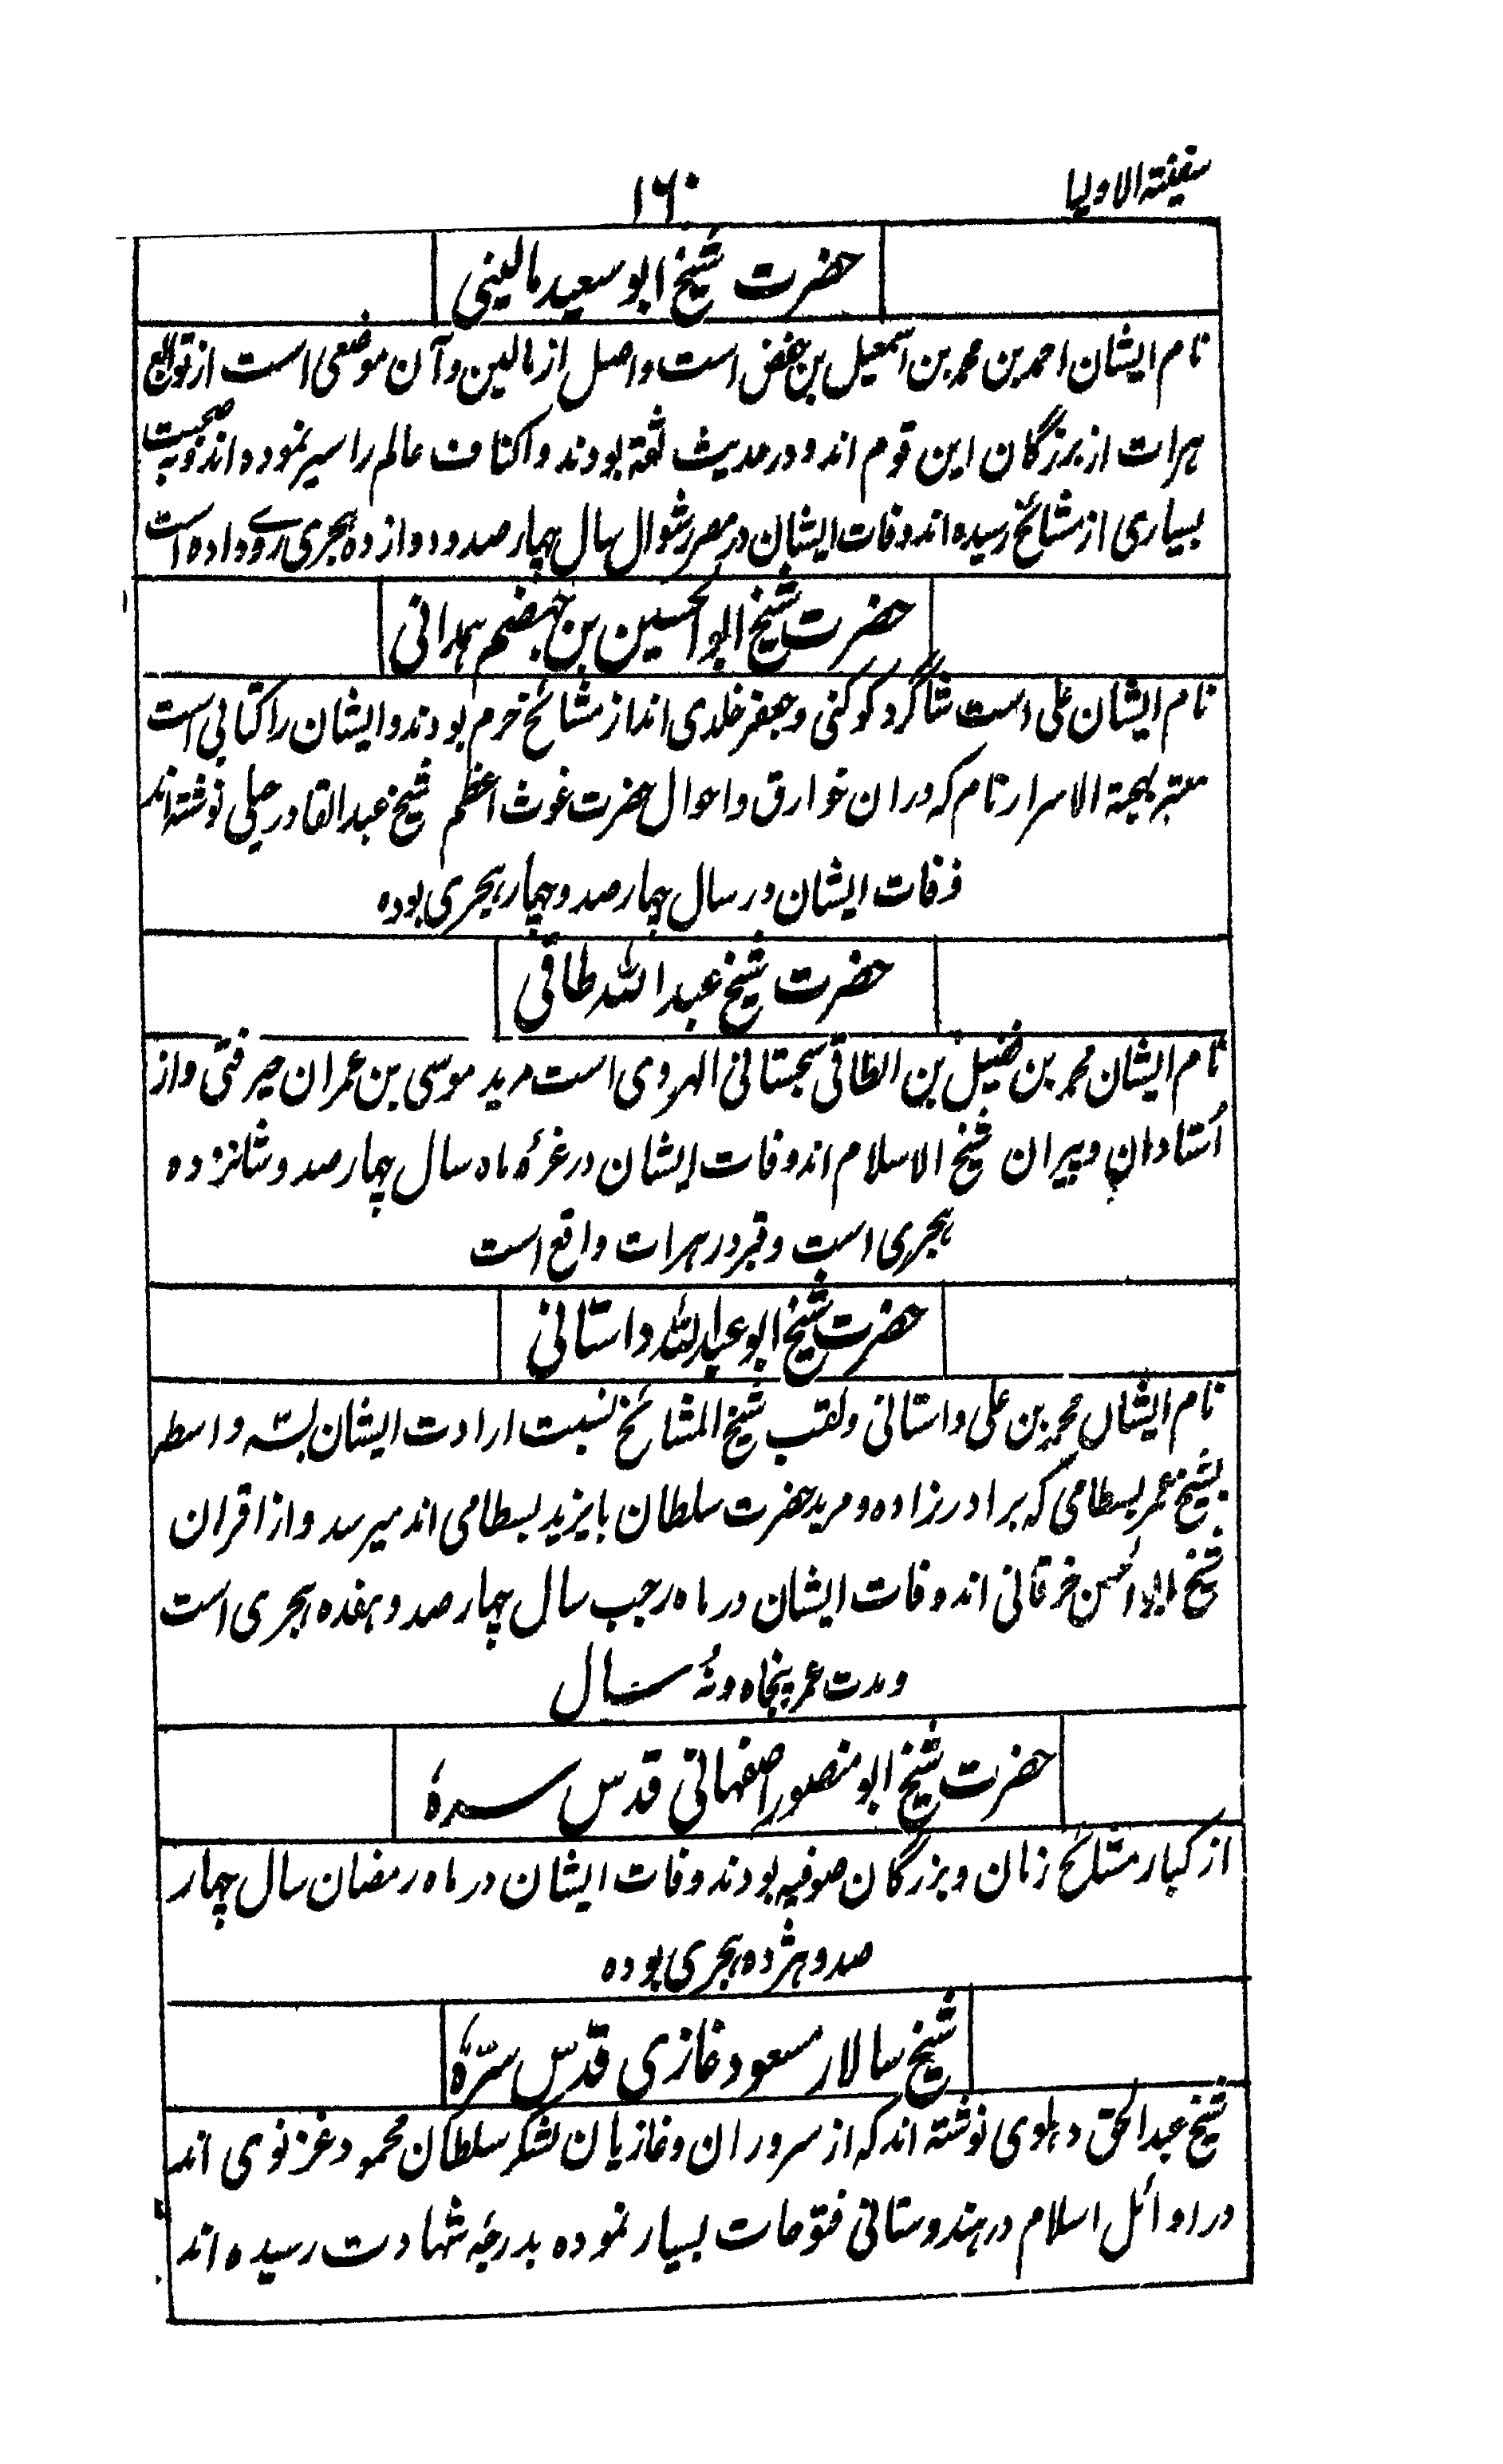 سفینۃ الاولیا
۱۶۰
حضرت شیخ ابو سعید مالینی
نام ایشان احمد بن محمد بن اسمعیل بن حفض است واصل از مالین و آن موضعی است از توابع
ہرات از بزرگان این قوم اند و در حدیث ثقۃ بودند و اکناف عالم را سیر نمودہ اند و بہ صحبت
بسیاری از مشائخ رسیدہ اند وفات ایشان در مصر شوال سال چہار صد و دوازدہ ہجری روے دادہ است
حضرت شیخ ابو الحسین بن جہضم ہمدانی
نام ایشان علی است شاگرد کوکنی و جعفر خلدی اند از مشائخ حرم بودند و ایشان را کتابی است
معتبر بہجۃ الاسرار نام کہ دران خوارق و احوال حضرت غوث اعظم شیخ عبد القادر جیلی نوشتہ اند
وفات ایشان در سال چہار صد و چہار ہجری بودہ
حضرت شیخ عبد اللہ طاقی
نام ایشان محمد بن فضیل بن الطاقی سجستانی الہروی است مرید موسی بن عمران جیرفتی و از
اُستادان و پیران شیخ الاسلام اند وفات ایشان در غرۂ ماہ سال چہار صد و شانزدہ
ہجری است و قبر در ہرات واقع است
حضرت شیخ ابو عبد اللہ داستانی
نام ایشاں محمد بن علی داستانی و لقب شیخ المشائخ نسبت ارادت ایشان بسّہ واسطہ
بشیخ عمر بسطامی کہ برادر زادہ و مرید حضرت سلطان بایزید بسطامی اند میرسد و از اقران
شیخ ابو الحسن خرقانی اند وفات ایشان در ماہ رجب سال چہار صد و ہفدہ ہجری است
و مدت عمر پنجاہ و نُہ سال
حضرت شیخ ابو منصور اصفہانی قدس سرہٗ
از کبار مشایخ زمان و بزرگان صوفیہ بودند وفات ایشان در ماہ رمضان سال چہار
صد و ہژدہ ہجری بودہ
شیخ سالار مسعود غازی قدّس سرّہٗ
شیخ عبد الحق دہلوی نوشتہ اند کہ از سروران و غازیان لشکر سلطان محمود غزنوی اند
در اوائل اسلام در ہندوستانی فتوحات بسیار نمودہ بدرجۂ شہادت رسیدہ اند